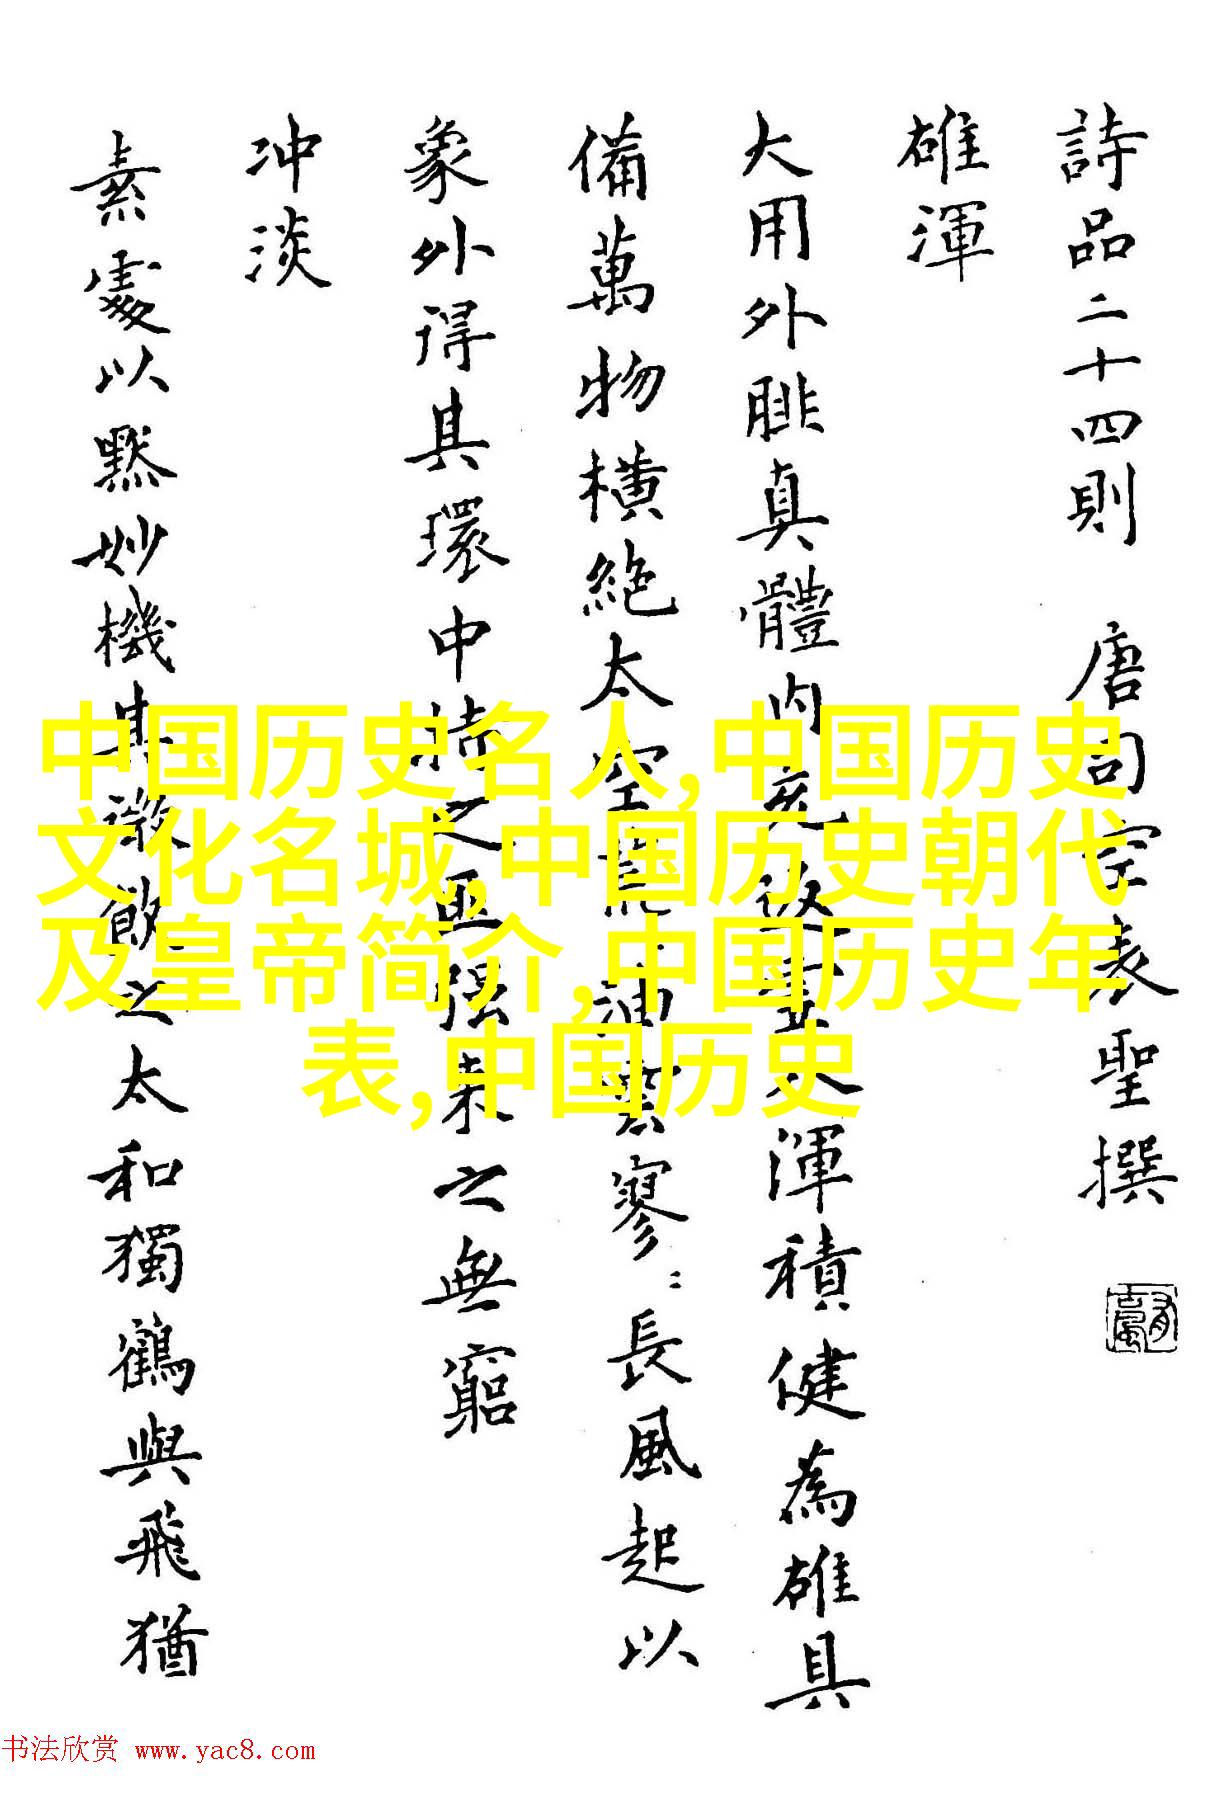 詩品二十四則 唐司空表聖撰
雄渾
大用外腓真體内充返虛入渾積健為雄具
備萬物横絶太空荒荒油雲寥〻長風起以
象外得其環中持之匪强来之無窮
冲淡
素處以默妙機其微飲之太和獨鶴與飛猶
中国历史名人,中国历史
文化名城,中国历史朝代
及皇帝简介,中国历史年
表,中国历史
书法欣赏 www.yac8.com